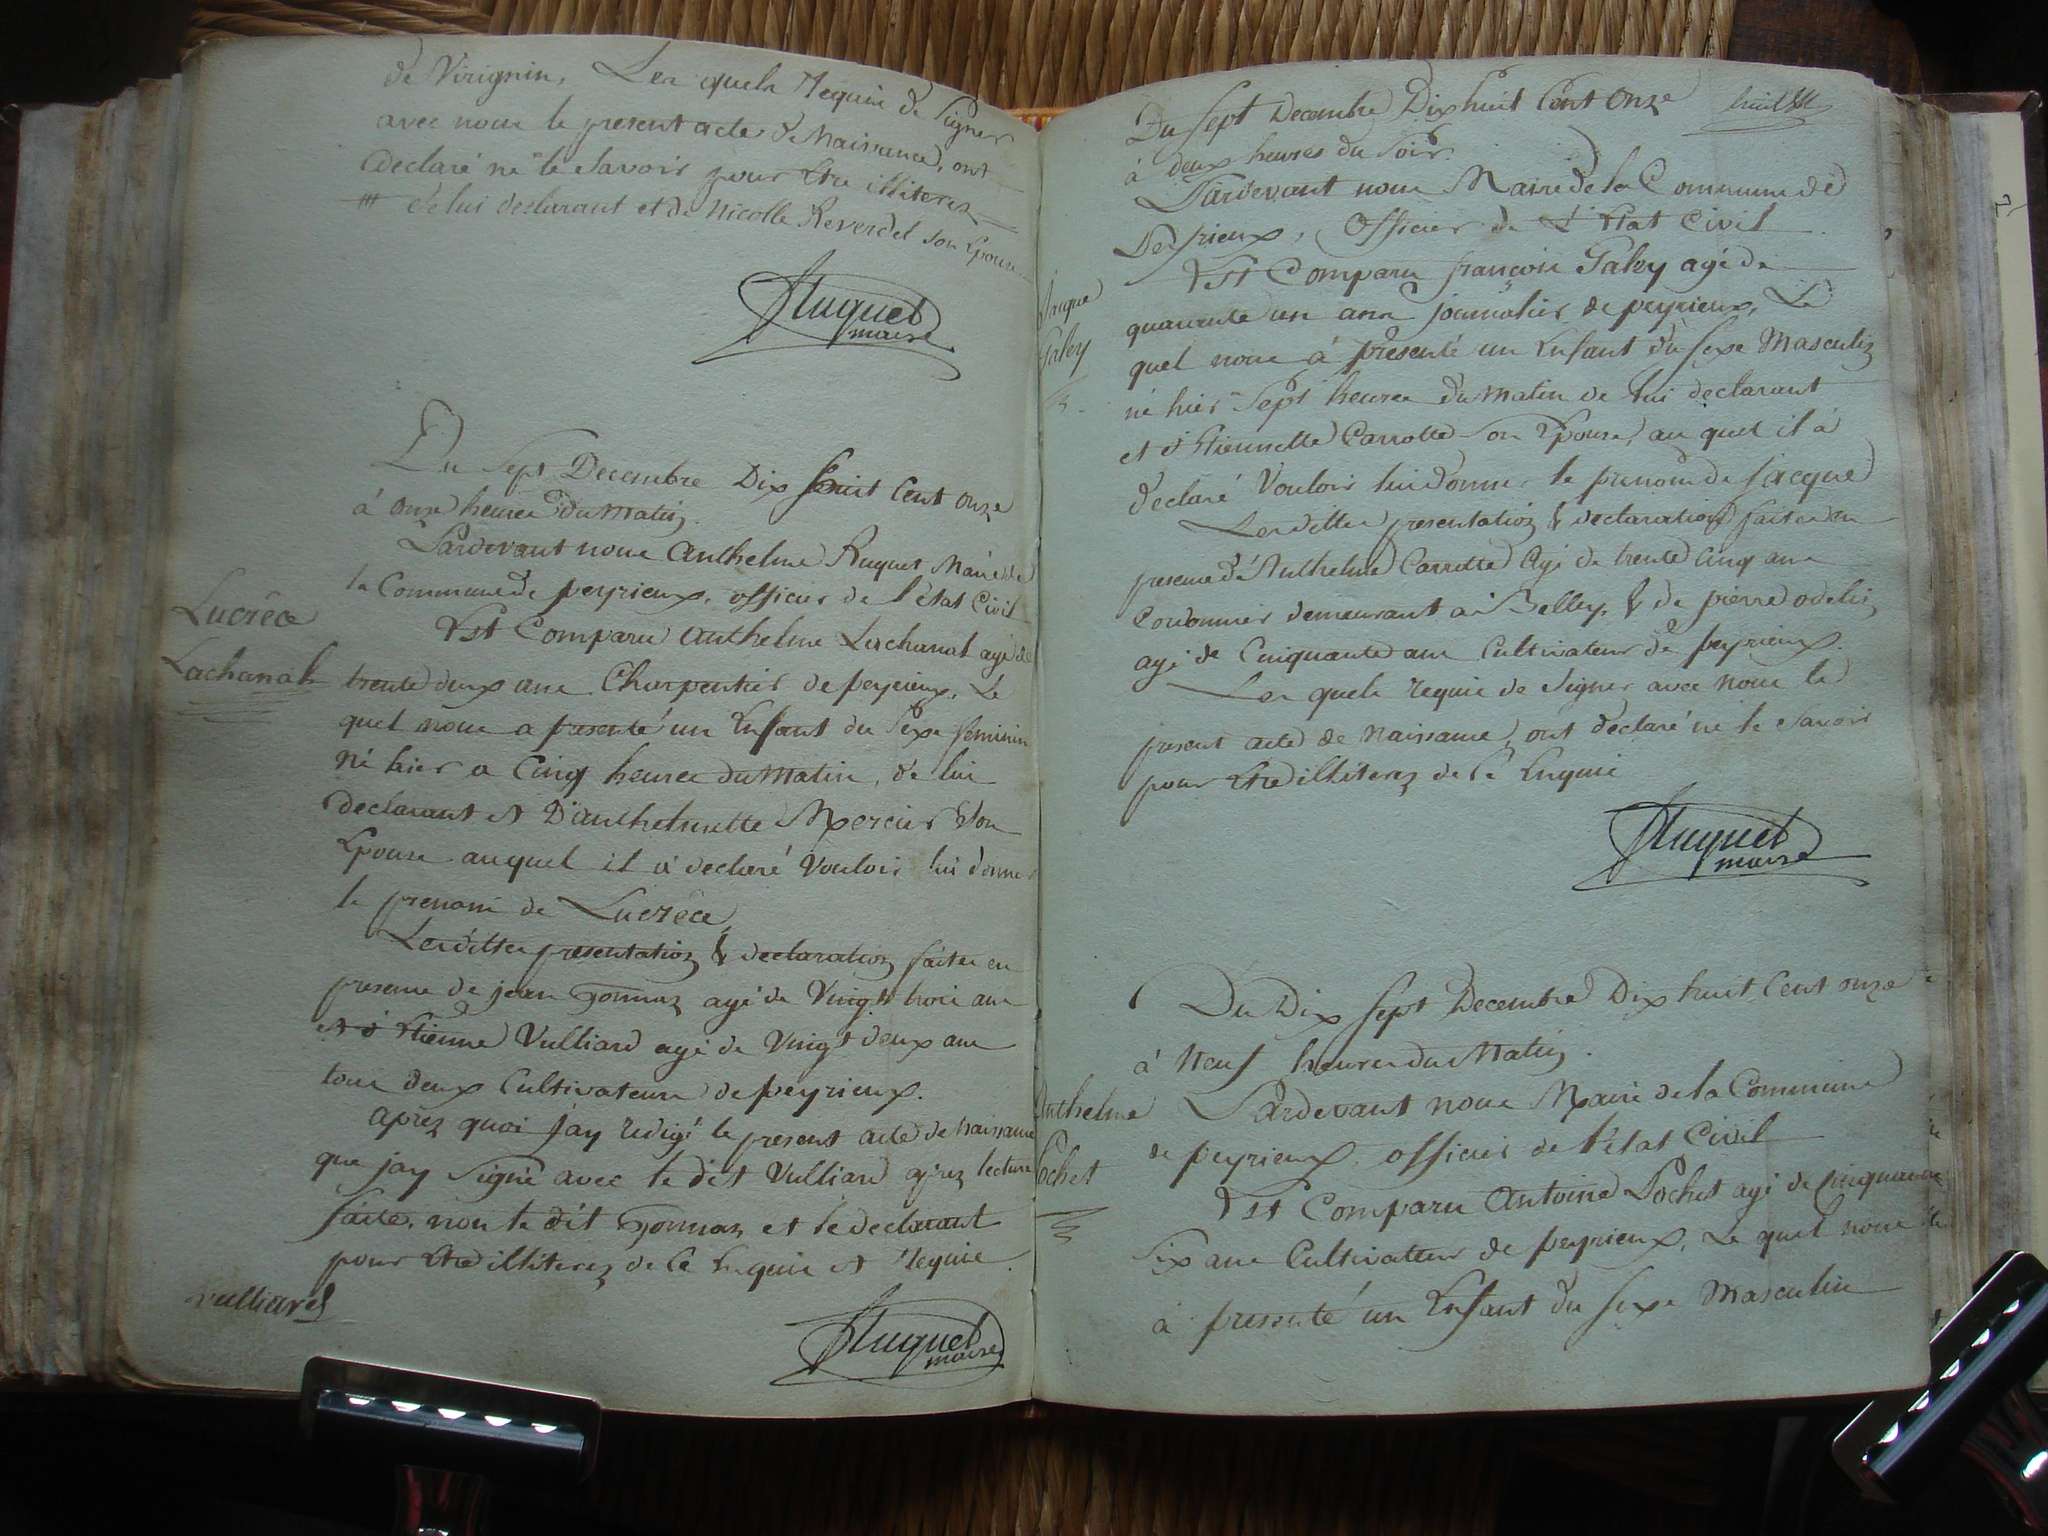 de Virignin, Les quels requis de signer
avec nous le present acte de Naissance, ont
declaré ne le Savoir pour Etre illiterez
de lui declarant et de Nicolle Reverdel son Epouse
Ruquet
maire
Du Sept Decembre Dix huit Cent onze
à onze heures du Matin.
Pardevant nous Anthelme Ruquet Maire de
la Commune de peyrieux, officier de l'état Civil
Lucrèce
Est Comparu Anthelme Lachanal agé de
Lachanal
trente deux ans Charpentier de peyrieux, Le
quel nous a presenté un Enfant du Sexe feminin
né hier a Cinq heures du Matin, de lui
declarant et D'anthelmette Mercier Son
Epouse auquel il à declaré Vouloir lui donner
le prenom de Lucrèce,
Lesdittes presentation & declaration faites en
presence de jean Gonnaz agé de Vingt trois ans
et d'Etienne Vulliard agé de Vingt deux ans
tous deux Cultivateurs de peyrieux.
Après quoi j'ay redigé le present acte de naissance
que jay Signé avec le dit Vulliard après lecture
faite, non le dit Gonnaz et le declarant
pour Etre illiterez de Ce Enquis et Requis.
Vulliard
Ruquet
maire
Du Sept Decembre Dix huit Cent Onze
à deux heures du Soir.
Pardevant nous Maire de la Commune de
Peyrieux, Officier de L'Etat Civil
Est Comparu françois Galey agé de
Jacque
quarante un ans journalier de peyrieux, Le
Galey
quel nous à presenté un Enfant du Sexe Masculin
né hier Sept heures du Matin de lui declarant
et d'Etiennette Carrotte Son Epouse, au quel il à
declaré Vouloir lui donner le prenom de Jacque
Lesdittes presentation & declaration faites en
presence d'Anthelme Carrotte Agé de trente Cinq ans
Cordonnier demeurant à Belley, & de pierre odelin
agé de Cinquante ans Cultivateur de peyrieux.
Les quels requis de Signer avec nous le
present acte de Naissance, ont declaré ne le Savoir
pour Etre illiterez de Ce Enquis
Ruquet
maire
Du Dix Sept Decembre Dix huit Cent onze
à Neuf heures du Matin.
Anthelme
Pardevant nous Maire de la Commune
de peyrieux officier de l'état Civil
Pochet
Est Comparu Antoine Pochet agé de Cinquante
Six ans Cultivateur de peyrieux, Le quel nous
à presenté un Enfant du Sexe Masculin